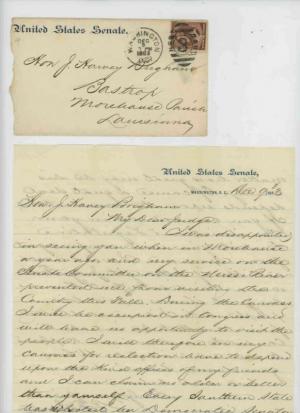 United States Senate,
WASHINGTON
DEC
Hon J. Harvey Brigham
Bastrop
Morehouse Parish
Louisiana
United States Senate,
WASHINGTON, D.C., Dec 9
Hon. J. Harvey Brigham
My Dear Judge
I was disappointed
in seeing you when in Morehouse
a year ago and my service on the
Senate Committee on the
prevented me from visiting that
Country this Fall. During the Canvass
I will be occupied in Congress and
will have no opportunity to visit the
people. I will therefore in my
canvass for reelection have to depend
upon the kind offices of my friends
and I can claim no older or better
than yourself. Every Southern State
Democratic Senate